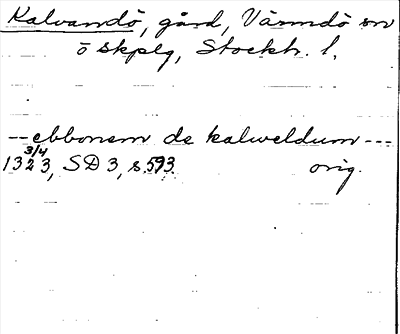 Kalvandö, gård, Värmdö sn
ö skplg, Stockh. l.
-- ebbonem de kalweldum ---
3/4
1323, SD 3, s. 593. orig.